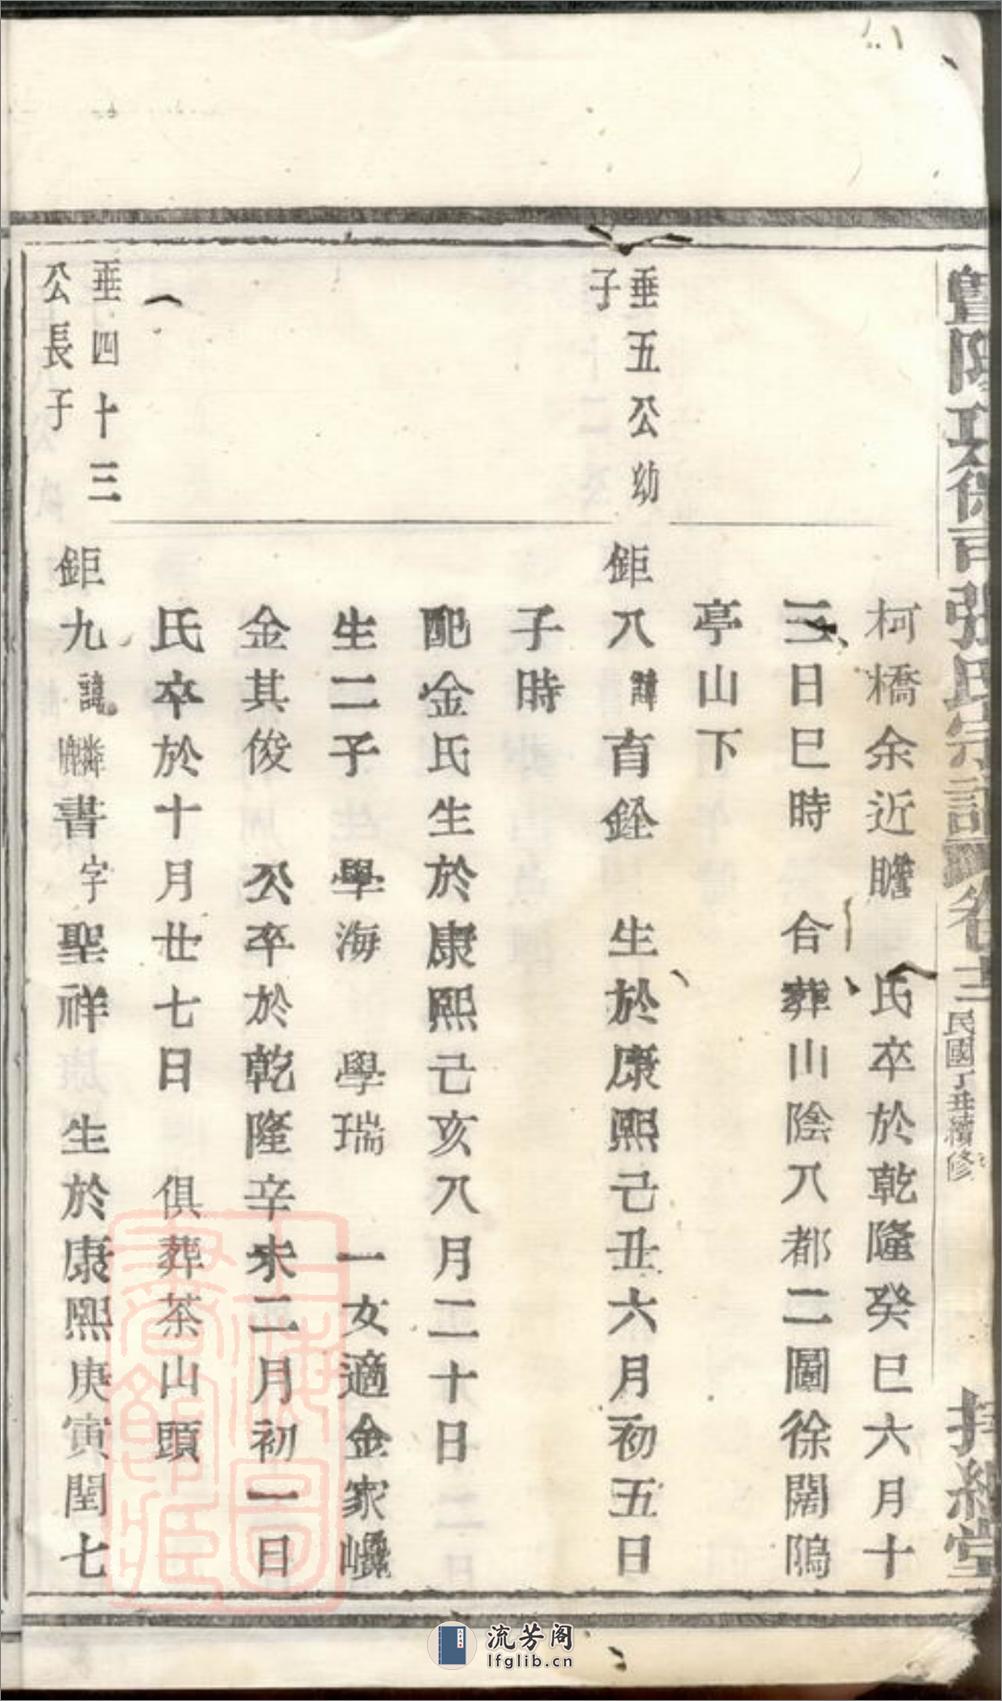 暨陽孝義張氏宗譜 卷十二 民國丁丑續修
柯橋余近瞻 氏卒於乾隆癸巳六月十
三日巳時 合葬山陰八都二圖徐闊隝
亭山下
垂五公幼
子
鉅八諱百銓 生於康熙己丑六月初五日
子時
配金氏生於康熙己亥八月二十日
生二子 學海 學瑞 一女適金家㠗
金其俊 公卒於乾隆辛未二月初一日
氏卒於十月廿七日 俱葬茶山頭
垂四十三
公長子
鉅九諱麟書字聖祥 生於康熙庚寅閏七
流芳阁
lfglib.cn